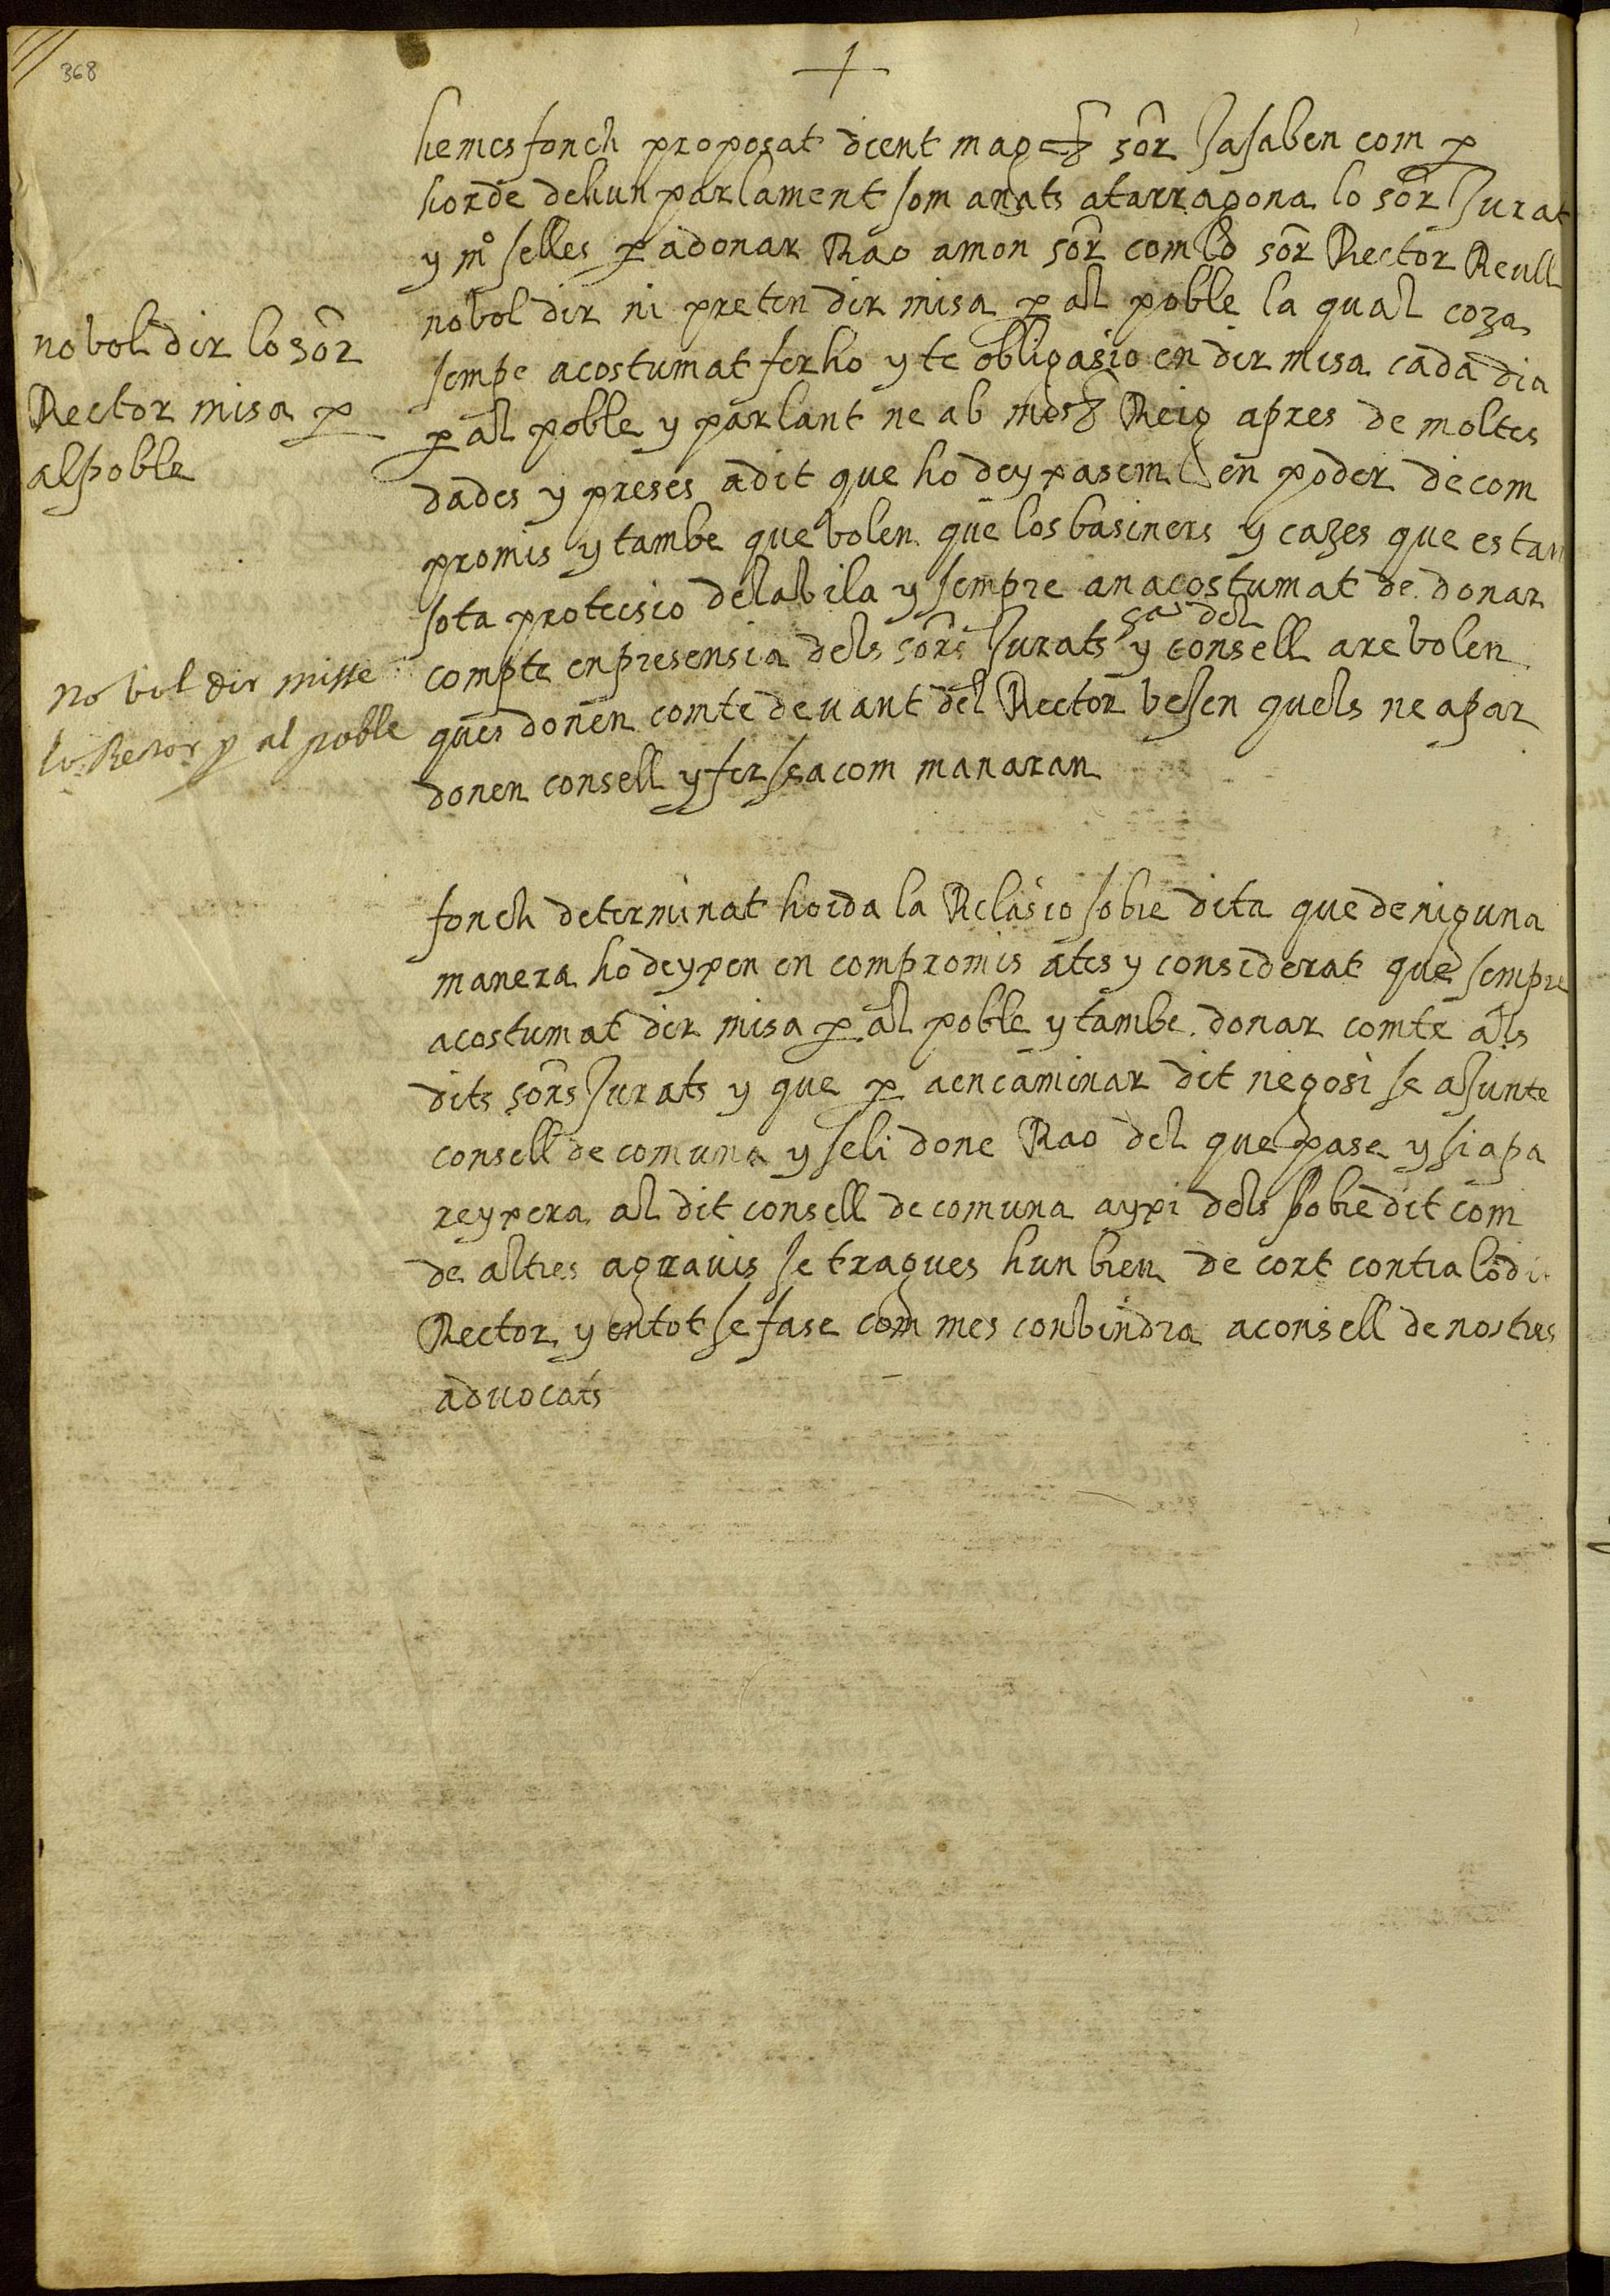 368
hemes fonch proposat dient mag sor Ja saben com p
horde de hun parlament som anats a tarragona lo sor Jurat
y mo selles p a donar Rao a mon sor com lo sor Rector Reull
no vol dir ni preten dir misa p al poble la qual coza
sempe acostumat ferho y te obligasio en dir misa cada dia
p al poble y parlant ne ab mos Reig apres de moltes
dades y preses a dit que ho deyxasem en poder de com
promis y tambe que volen que los basiners y cazes que estan
sota protecsio de la vila y sempre an acostumat de donar
compte en presensia dels sors Jurats y consell are volen
ques donen comte devant del Rector vesen quels ne apar
donen consell y fer sea com manaran
no vol dir lo sor
Rector misa p
al poble
No vol dir misse
lo Retor p al poble
fonch determinat hoida la Relasio sobre dita que de niguna
manera ho deyxen en compromis ates y considerat que sempre
acostumat dir misa p al poble y tambe donar comte als
dits sors Jurats y que p a encaminar dit negosi se aJunte
consell de comuna y seli done Rao del que pase y si apa
reyxera al dit consell de comuna ayxi dels sobre dit com
de altres agravis se tragues hun breu de cort contra lo di
Rector y en tot se fase com mes convindra a consell de nostres
advocats